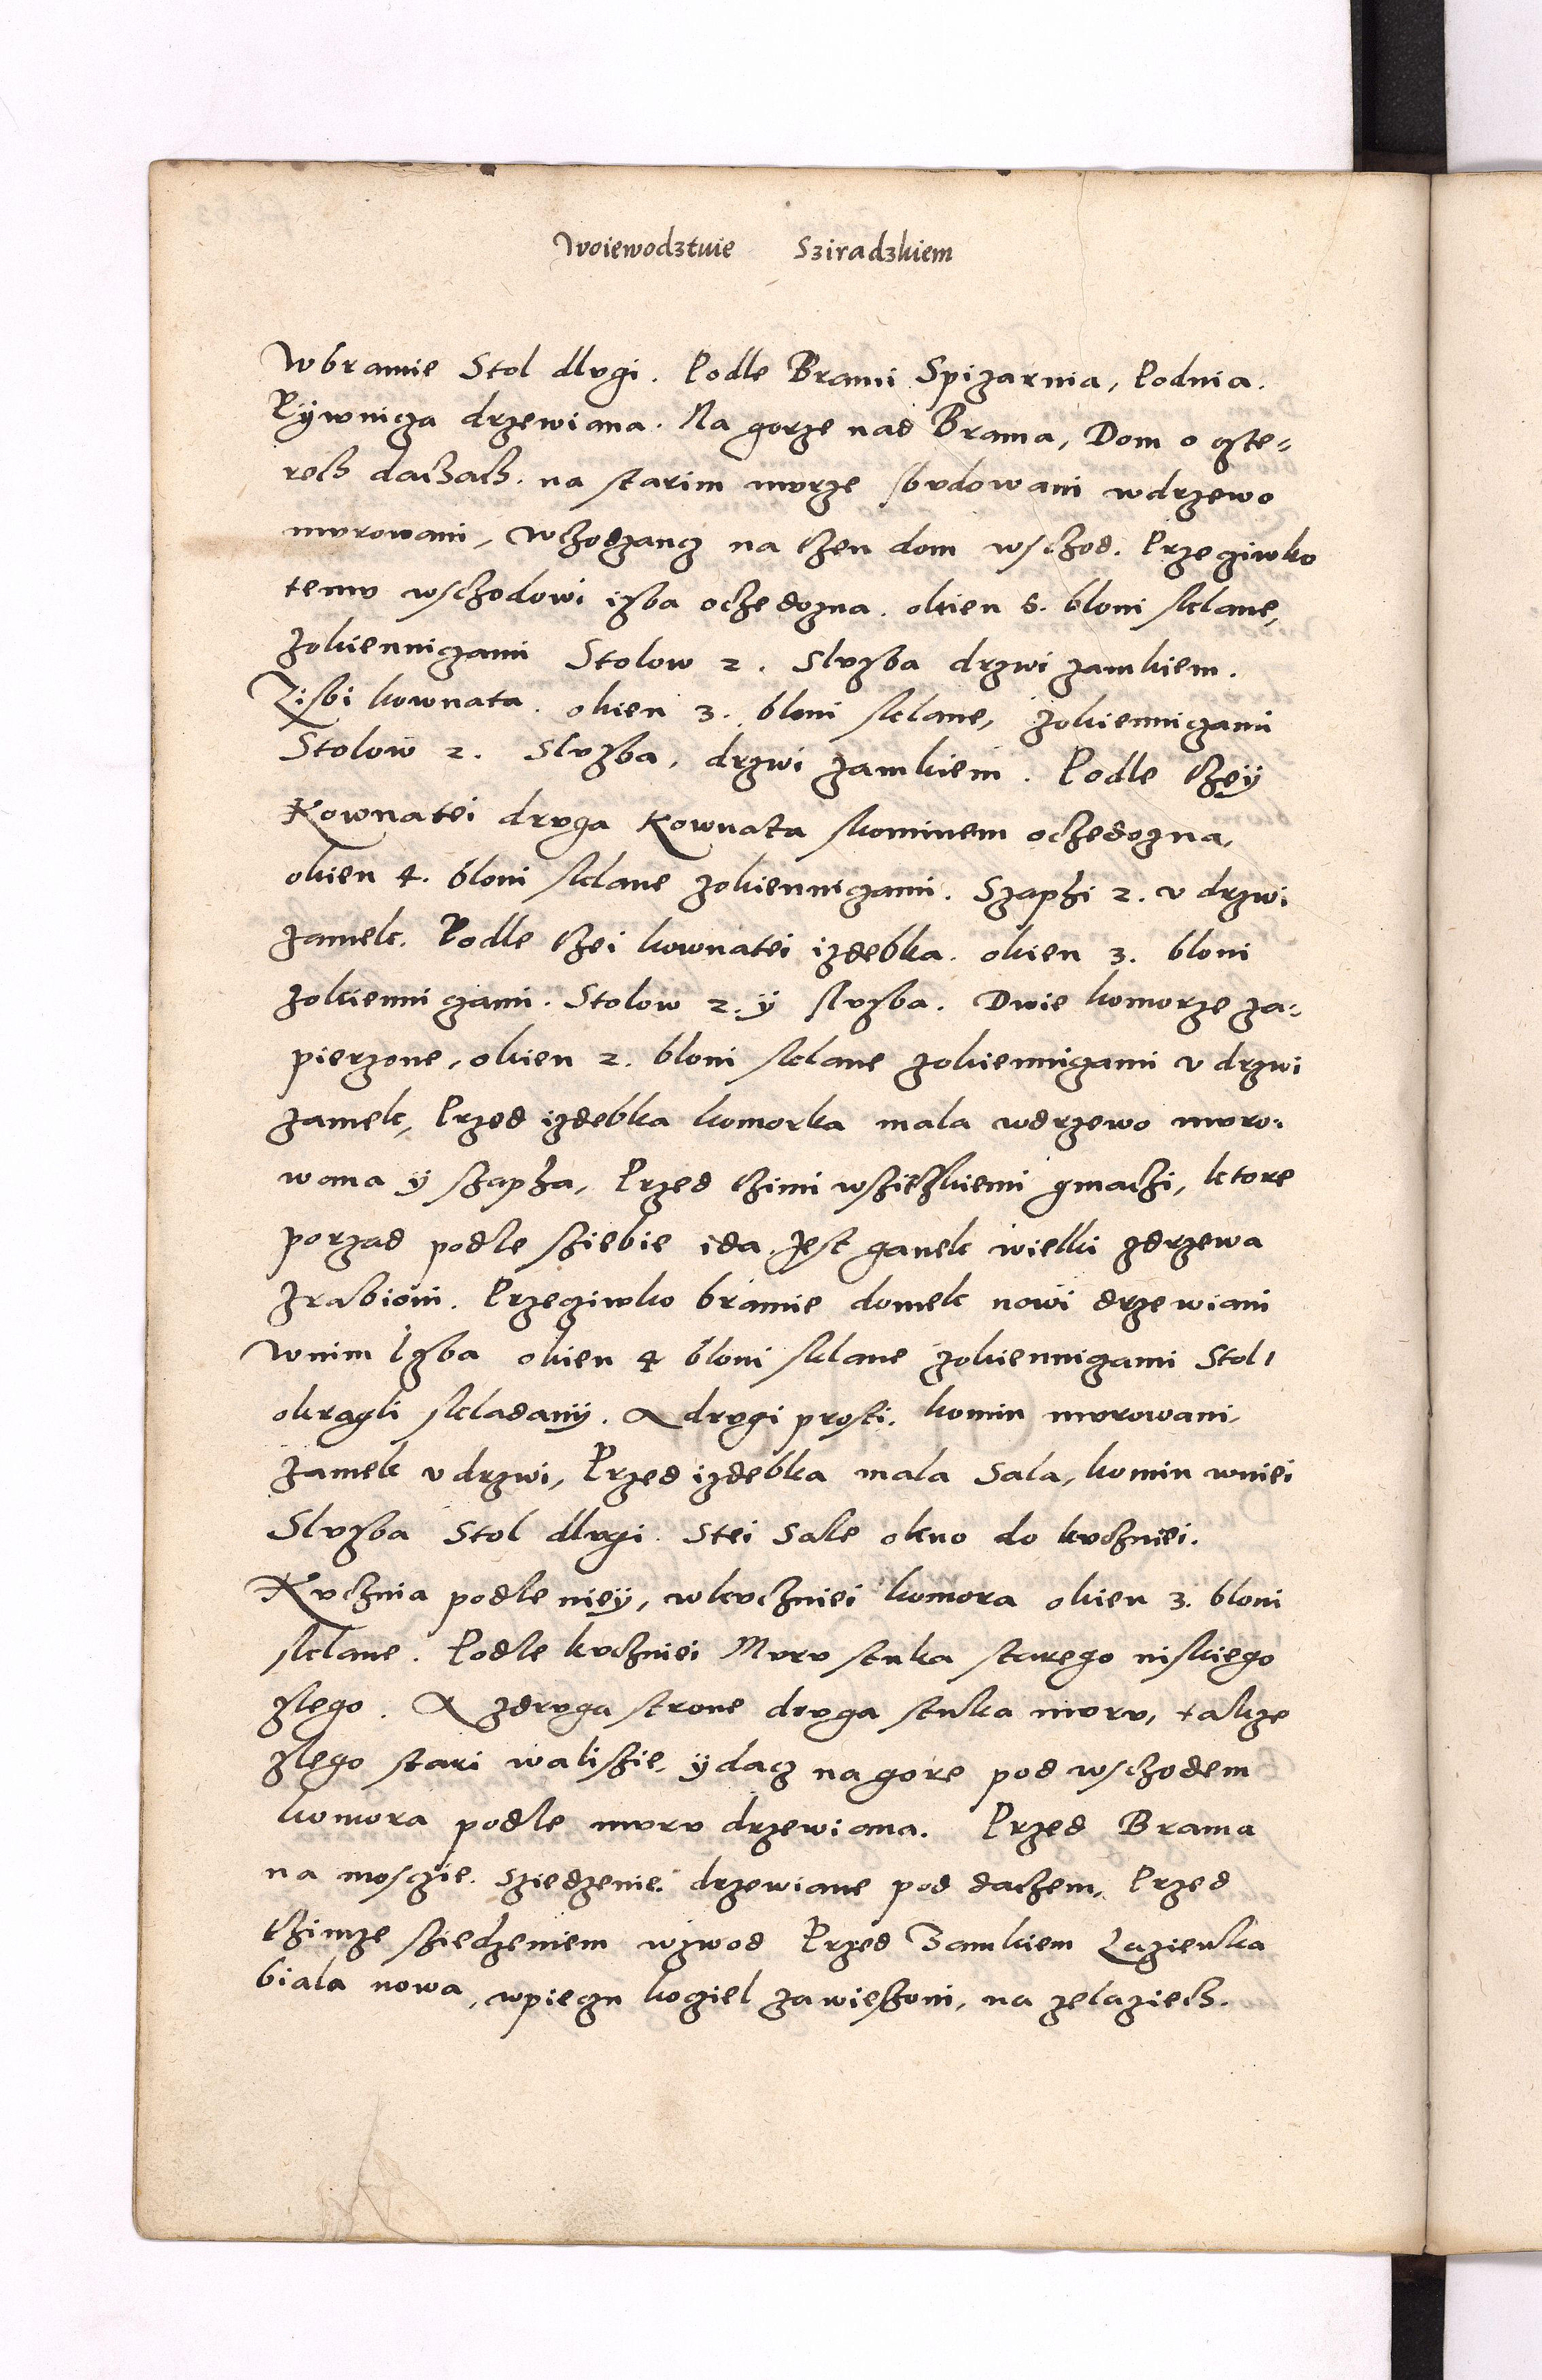 Woiewodztwie Sziradzkiem
Wbramie Stol dlvgi. Podle Brami Spizarnia, Podnia.
Pÿwnicza drzewiana. Na gorze nad Brama, Dom o czte-
rech dachach. na starim mvrze sbvdowani wdrzewo
mvrowani, wchodzancz na then dom wschod. Przecziwko
temv wschodowi izba ochedozna. okien 5. bloni sklane,
zokienniczami Stolow 2. Slvzba drzwi zamkiem.
Zisbi kownata. okien 3. bloni sklane, zokienniczami
Stolow 2. Slvzba, drzwi zamkiem. Podle theÿ
Kownatei drvga Kownata skominem ochedozna,
okien 4. bloni sklane zokienniczami. Szaphi 2. v drzwi
zamek. Podle thei kownatei izdebka. okien 3. bloni
zokienniczami. Stolow 2. ÿ slvzba. Dwie komorze za-
pierzone, okien 2. bloni sklane zokienniczami v drzwi
zamek, Przed izdebka komorka mala wdrzewo mvro-
wana ÿ szapha, Przed thimi wszistkiemi gmachi, ktore
porzad podle sziebie ida Jest ganek wielki zdrzewa
zrabioni. Przecziwko bramie domek nowi drzewiani
wnim Izba okien 4 bloni sklane zokienniczami Stol 1
okragli skladanÿ. A drvgi prosti. komin mvrowani,
zamek v drzwi, Przed izdebka mala Sala, komin wniei
Slvzba Stol dlvgi. Stei Sale okno do kvchniei.
Kvchnia podle nieÿ, wkvchniei komora okien 3. bloni
sklane. Podle kvchniei Mvrv stuka starego niskiego
zlego. A zdrvga strone drvga stuka mvrv, takze
zlego stari walishie, ÿdacz na gore pod wschodem
komora podle mvrv drzewiana. Przed Brama
na mosczie. Sziedzenie drzewiane pod dachem, Przed
thimze sziedzeniem wzwod Przed Zamkiem Lazienka
biala nowa, wpieczu kocziel zawieszoni, na zelaziech.